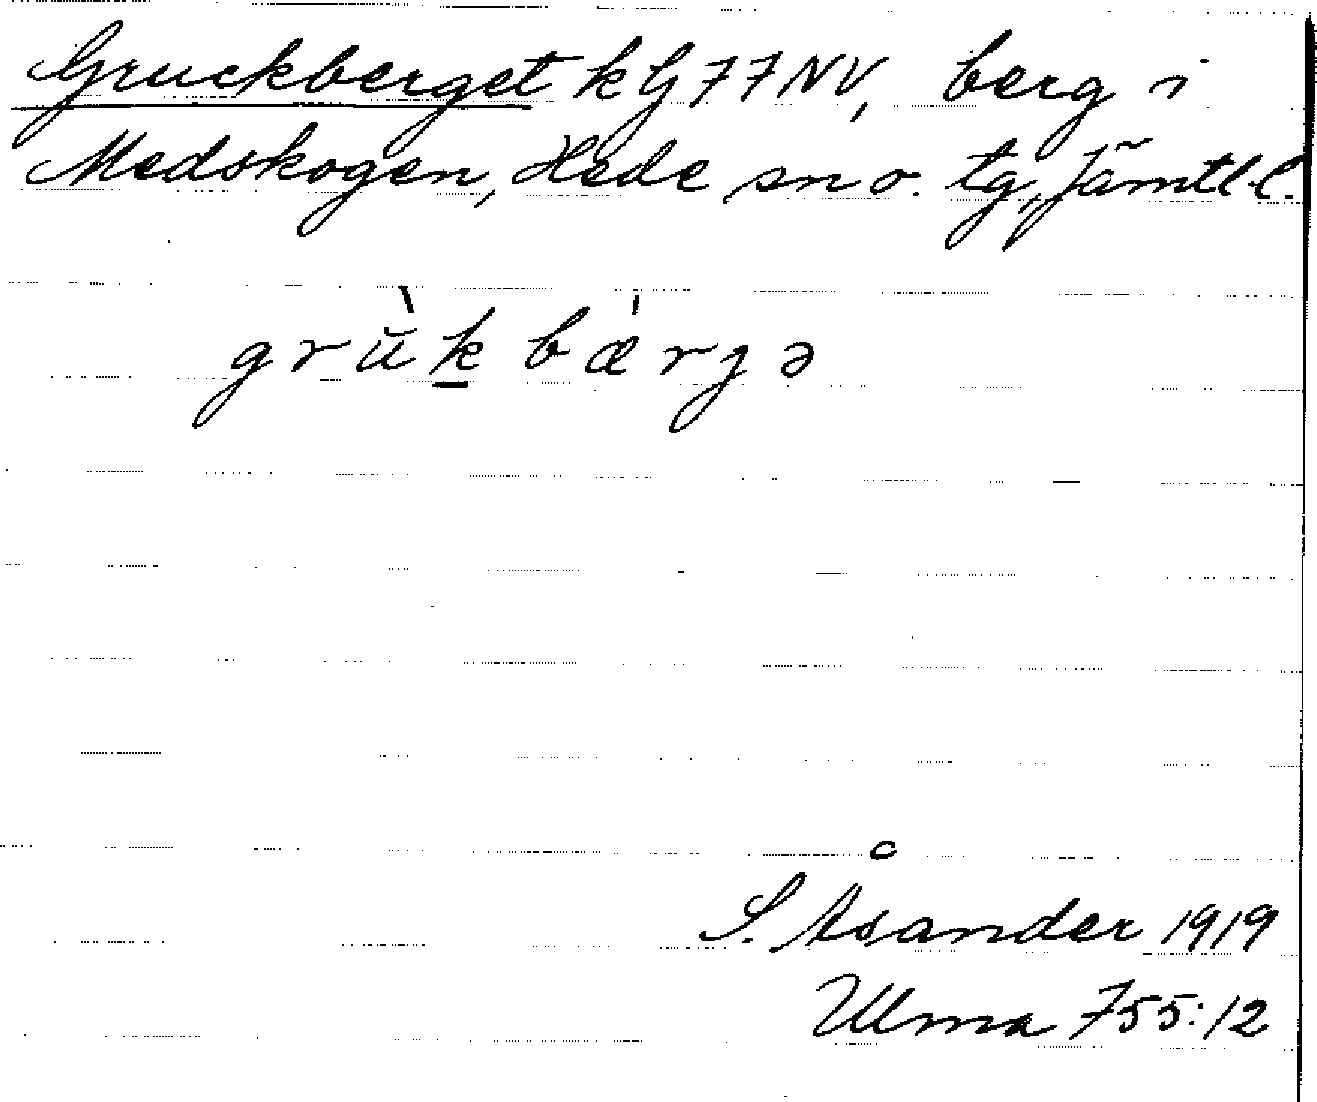 Gruckberget kG77NV, berg i
Medskogen, Hede sn o. tg, Jämtl. l.
grùk̲bǽrjə
S. Åsander 1919
Ulma 755:12